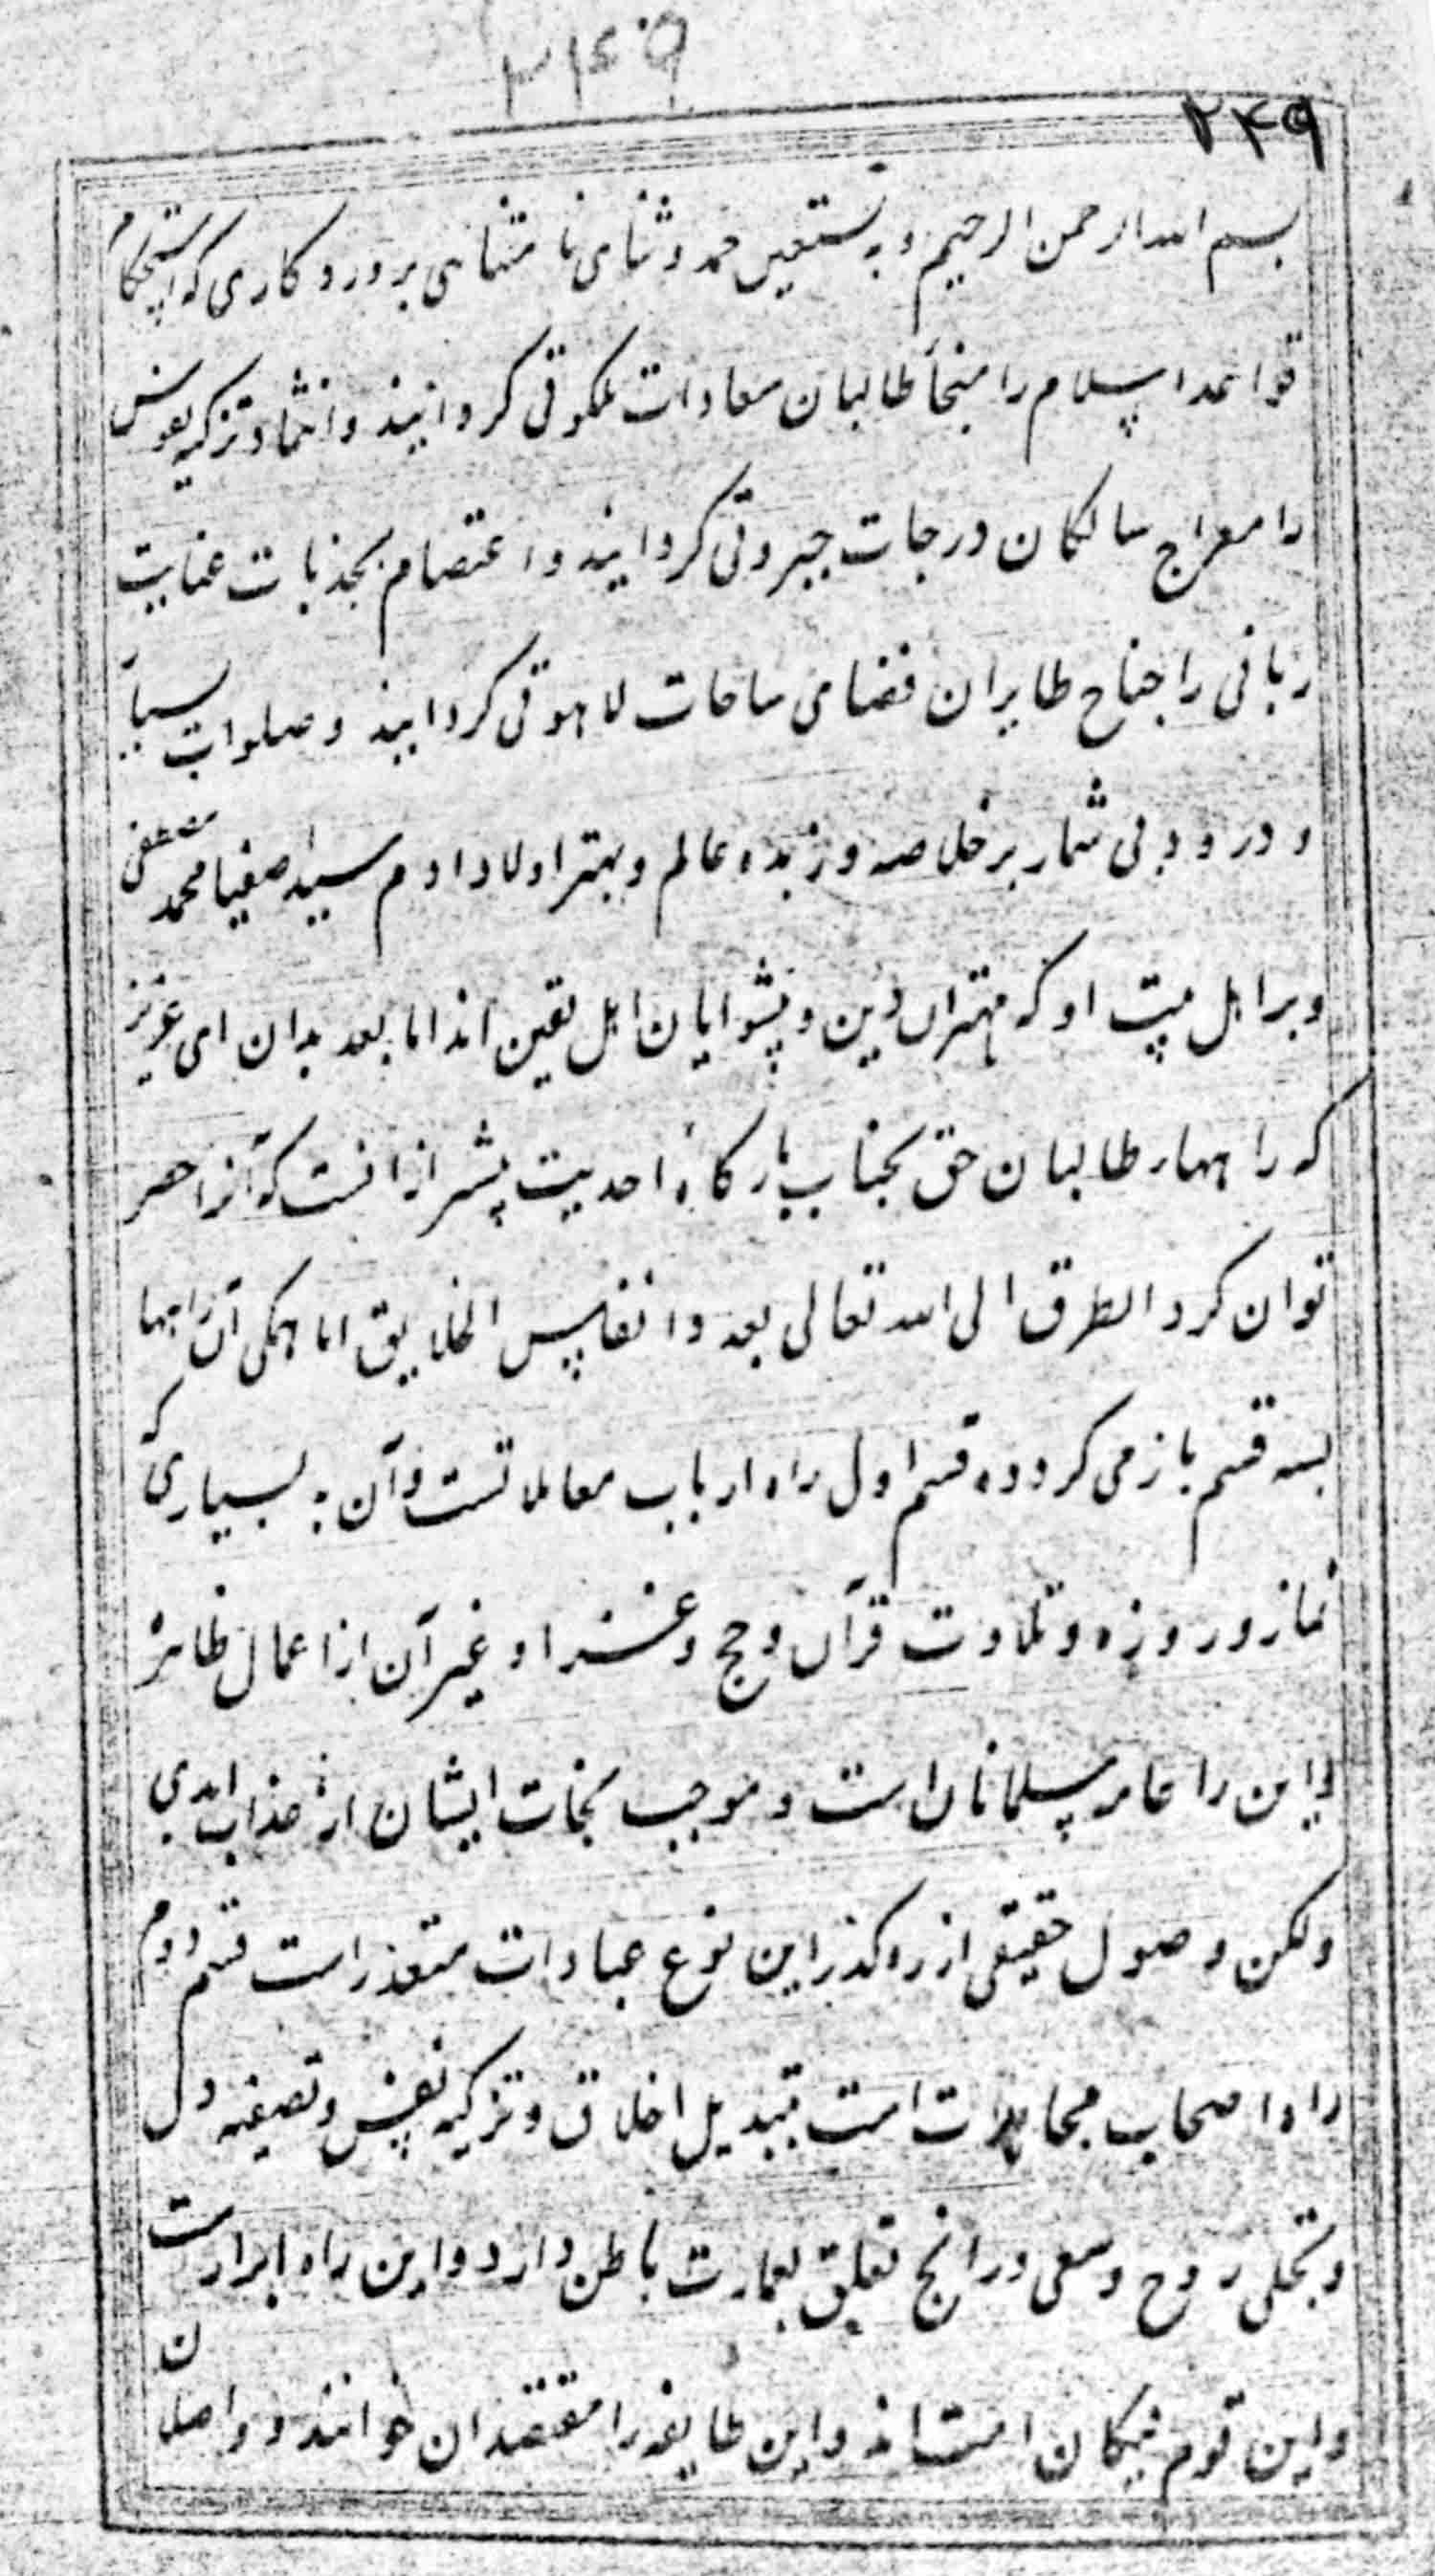 ۲۱۴۹
۲۴۹
بسم الله الرحمن الرحیم و به نستعین حمد و ثنای نا متناهی پروردکاری که استحکام
قواعد اسلام را منجأ طالبان سعادات ملکوتی کردانید و تزکیه نفوس
را معراج سالکان درجات جبروتی کردانید و اعتصام بجذبات عنایت
ربانی را جناح طایران فضای ساحات لاهوتی کردانید و صلوات
و درود بی شمار بر خلاصه و زبده عالم و بهتر اولاد ادم سید اصفیا محمد مصطفی
و بر اهل بیت او که مهتران دین و پیشوایان اهل یقین اند اما بعد بدان ای عزیز
که راههاء طالبان حق بجناب بارکاه احدیت بیشتر از انست که آنرا حصر
توان کرد الطرق الی الله تعالی بعدد انفاس الخلایق اما همکی آن راهها
بسه قسم باز می کردد قسم اول راه ارباب معاملاتست و آن به بسیاری که
نماز و روزه و تلاوت قرآن و حج و غزا و غیر آن از اعمال ظاهر
و این راه عامه مسلمانان است و موجب نجات ایشان از عذاب ابدی
ولکن وصول حقیقی از رهکذر این نوع عبادات متعذر است قسم دوم
راه اصحاب مجاهدات است بتبدیل اخلاق و تزکیه نفس و تصفیه دل
و تجلی روح و سعی در انچ تعلق بعمارت باطن دارد و این راه ابرارست
و این قوم نیکان امت اند و این طایفه را مقتصدان خوانند و واصلان